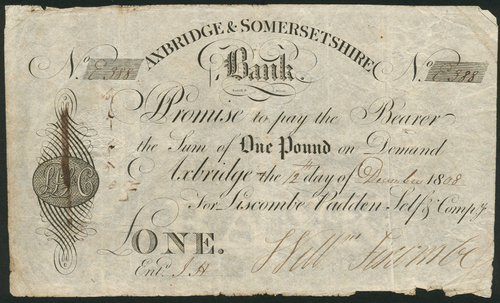 AXBRIDGE & SOMERSETSHIRE
Bank.
No. E 388 No. E 388
I Promise to pay the Bearer
the Sum of One Pound on Demand
Axbridge the 12th day of December 1808
For Liscombe Padden Self & Compy.
£ONE.
Entd.
Liscombe